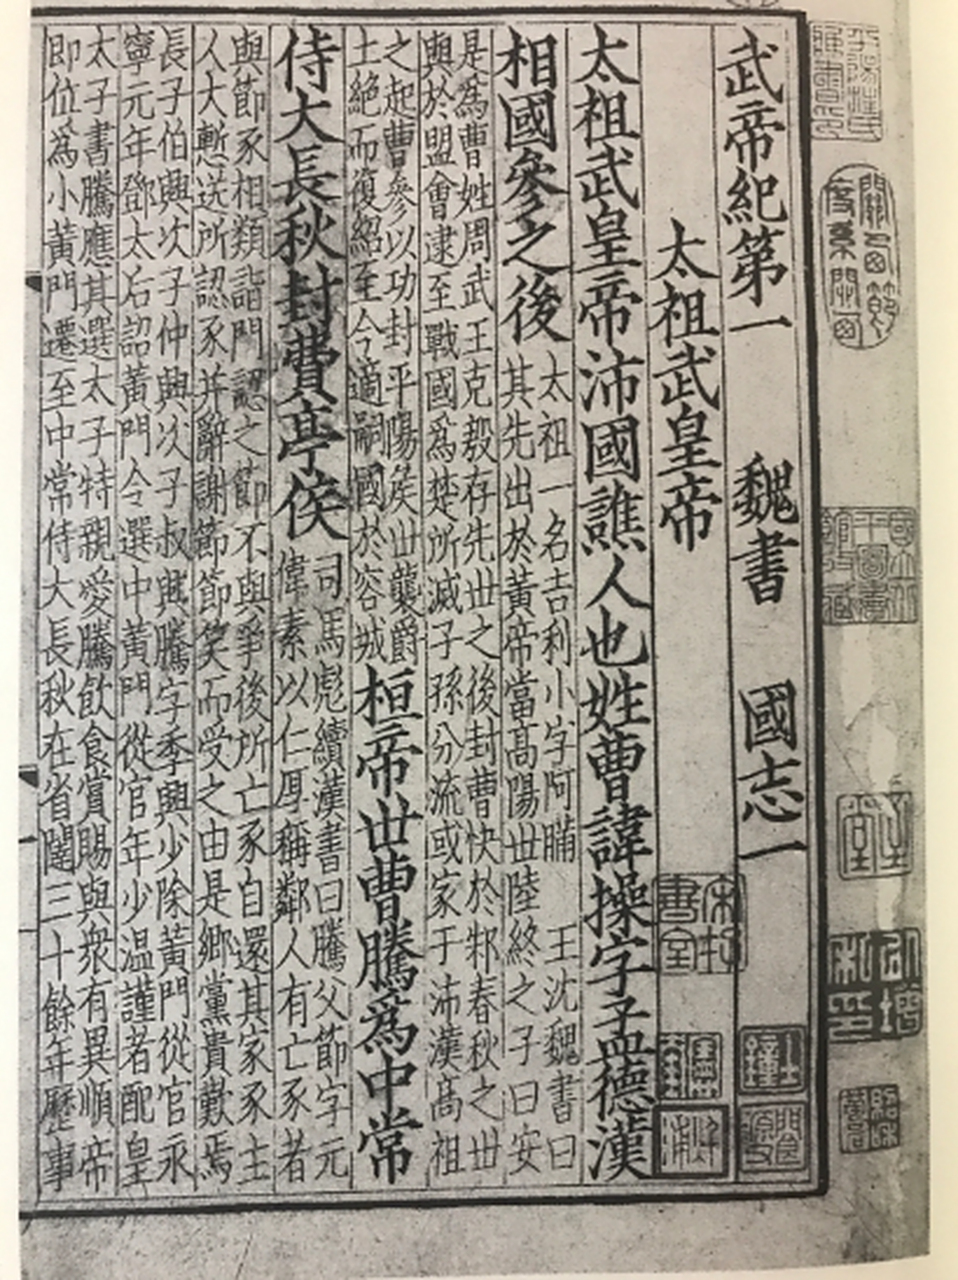 武帝紀第一　魏書　國志一
太祖武皇帝
太祖武皇帝沛國譙人也姓曹諱操字孟德漢
相國參之後
太祖一名吉利小字阿瞞　王沈魏書曰
其先出於黃帝當高陽世陸終之子曰安
是爲曹姓周武王克殷存先世之後封曹俠於邾春秋之世
與於盟會逮至戰國爲楚所滅子孫分流或家于沛漢高祖
之起曹參以功封平陽侯世襲爵
土絕而復紹至今適嗣國於容城
桓帝世曹騰爲中常
侍大長秋封費亭侯
司馬彪續漢書曰騰父節字元
偉素以仁厚稱鄰人有亡豕者
與節豕相類詣門認之節不與爭後所亡豕自還其家豕主
人大慙送所認豕并辭謝節節笑而受之由是鄉黨貴歎焉
長子伯興次子仲興次子叔興騰字季興少除黃門從官永
寧元年鄧太后詔黃門令選中黃門從官年少溫謹者配皇
太子書騰應其選太子特親愛騰飲食賞賜與衆有異順帝
即位爲小黃門遷至中常侍大長秋在省闥三十餘年歷事